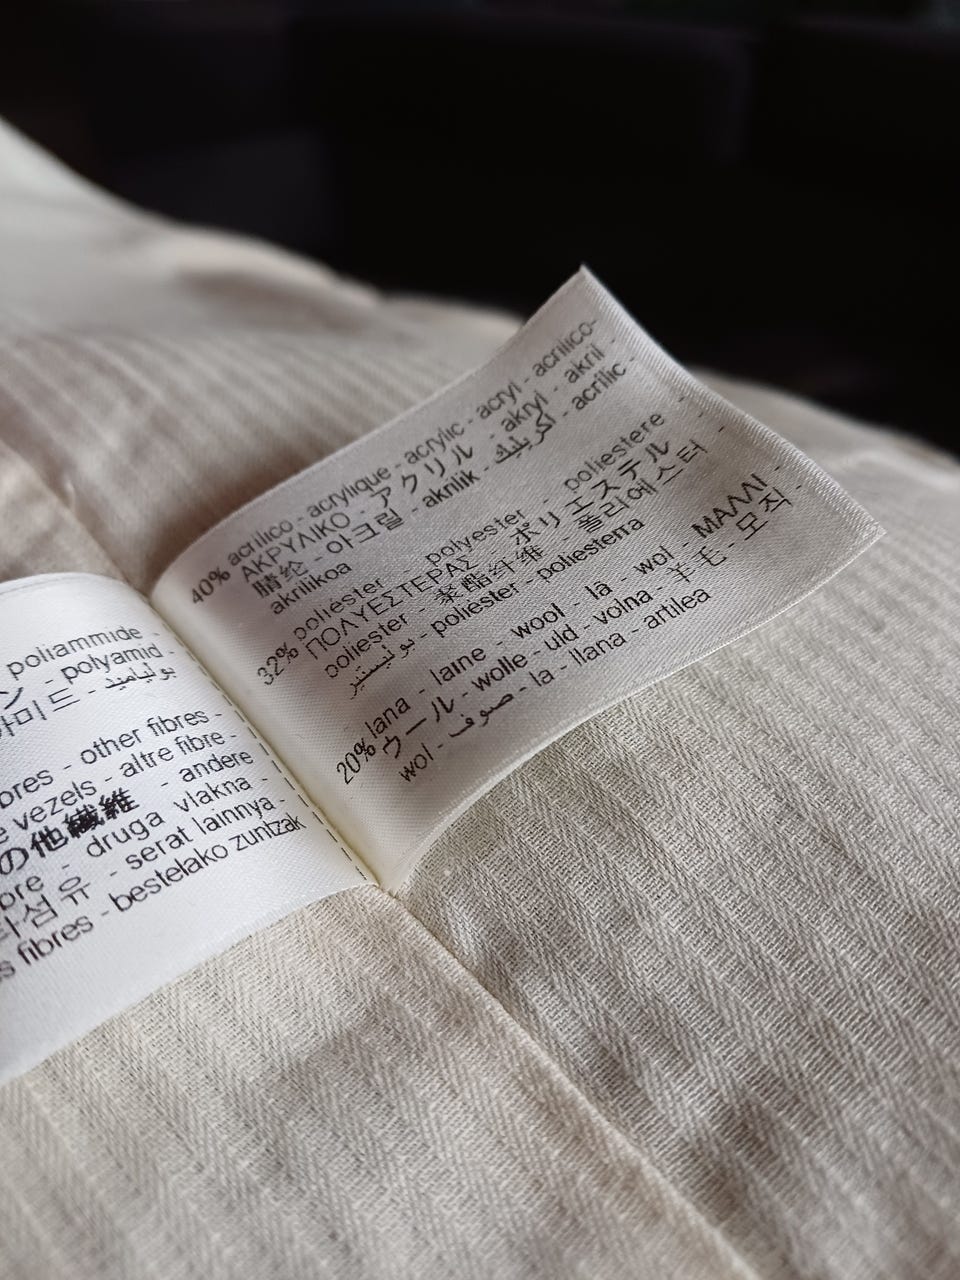 poliammide -
ン - polyamid -
아미드 - بولياميد
other fibres -
vezels - altre fibre -
の他繊維 - andere
druga vlakna -
섬유 - serat lainnya -
fibres - bestelako zuntzak
40% acrilico - acrylique - acrylic - acryl - acrílico -
ΑΚΡΥΛΙΚΟ - アクリル - akryl - akril -
腈纶 - 아크릴 - akrilik - اكريليك - acrílic -
akrilikoa
32% poliestere - polyester - poliéstere -
ΠΟΛΥΕΣΤΕΡΑΣ - ポリエステル -
poliester - 聚酯纤维 - 폴리에스터 -
بوليستير - poliester - poliesterra
20% lana - laine - wool - lã - wol - ΜΑΛΛΙ -
ウール - wolle - uld - volna - 羊毛 - 모직 -
wol - صوف - la - llana - artilea